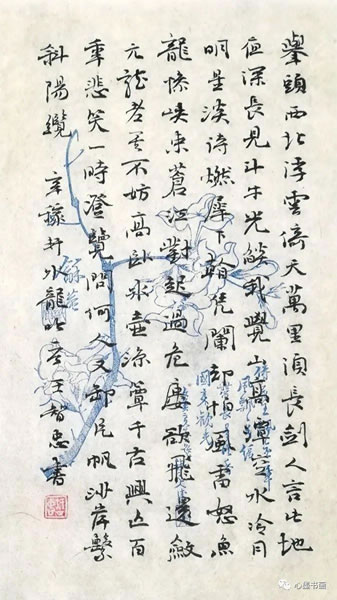 舉頭西北浮雲倚天萬里須長劍人言此地
夜深長見斗牛光燄我覺山高潭空水冷月
明星淡待燃犀下看凭闌却怕風雷怒魚
龍慘峽束蒼江對起過危樓欲飛還斂
元龍老矣不妨高卧冰壺涼簟千古興亡百
年悲笑一時登覽問何人又卸片帆沙岸繫
斜陽纜 辛稼軒水龍吟 王智忠書